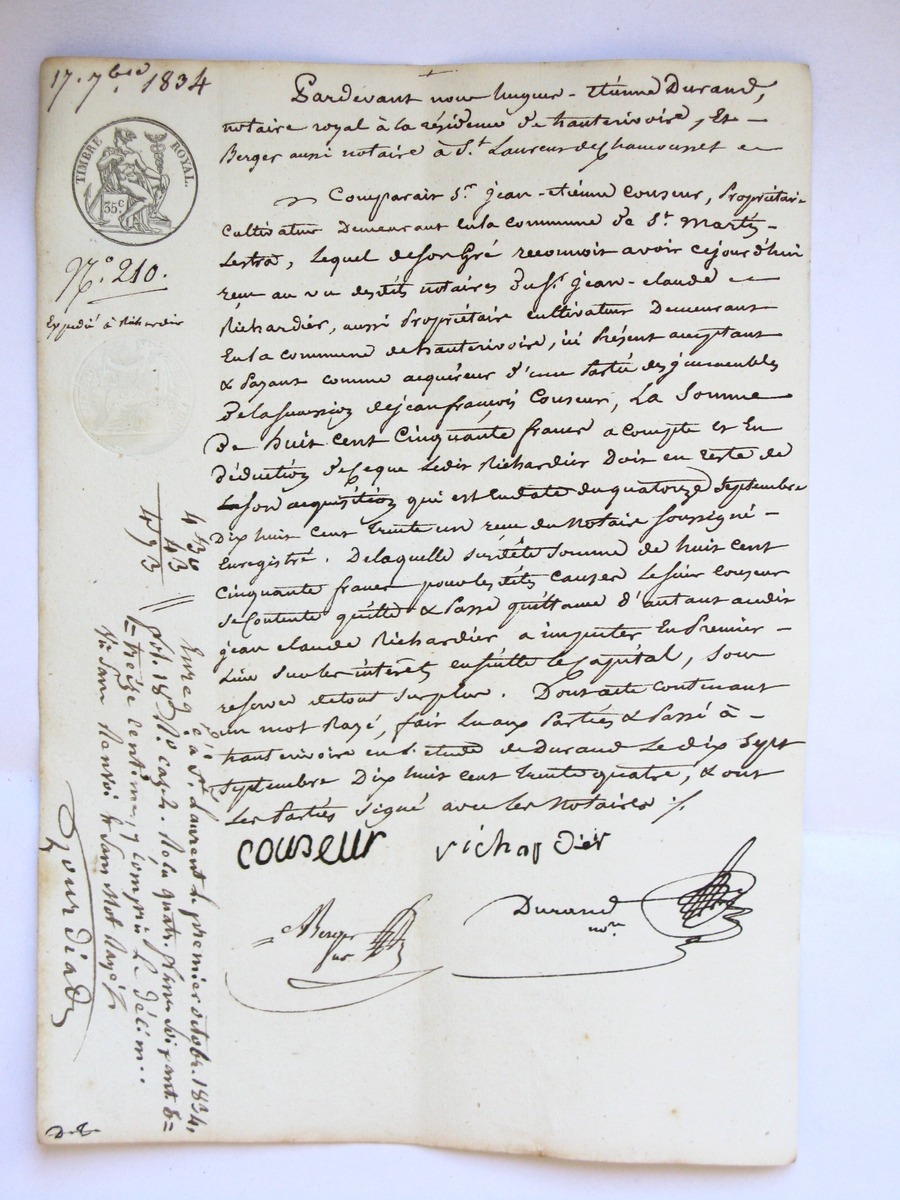 17. 7bre 1834
TIMBRE ROYAL.
35 c
N.° 210.
Expédié à Richardier
Pardevant nous hugues-étienne Durand,
notaire royal à la résidence de hauterivoire, Et
Berger aussi notaire à St. Laurent de Chamousset
Comparait Sr. jean-etiénne Couseur, Propriétaire
cultivateur Demeurant En la commune de St. Martin
Lestra, Lequel de son gré reconnoit avoir cejourd'hui
recu au vu desdits notaires du Sr. jean-claude
Richardier, aussi Propriétaire cultivateur Demeurant
En la commune de hauterivoire, ici Présent acceptant
& Payant comme acquéreur d'une Partie des jmmeubles
De la succession de jean françois Couseur, La Somme
De huit cent Cinquante francs a compte et En
déduction de Ce que Ledit Richardier Doit en reste de
son acquisition qui est En date du quatorze Septembre
Dix huit Cent trente un recu du Notaire Soussigné
Enregistré. De laquelle susdite somme de huit cent
Cinquante francs pour lesdites causes Le sieur Couseur
se Contente quitte & Passe quittance d'autant audit
jean claude Richardier a imputer En Premier
Lieu Sur les intérêt ensuitte le Capital, sous
reserve de tout surplus. Dont acte contenant
un mot Rayé, fait Lu aux Parties & Passé à
hauterivoire en l'étude de Durand Le dix Sept
Septembre Dix huit Cent trente quatre, & ont
Les Parties Signé avec les Notaires ./.
couseur richardier
Berger
Durand
nore
430
43
493
Enreg.é à St. Laurent le premier octobre 1834,
fol. 18 Vo. case 2. Recu quatre francs soixante &
treize centimes, y compris le décime..
Vu sans Renvoi & sans Mot Rayé
Gourdiad